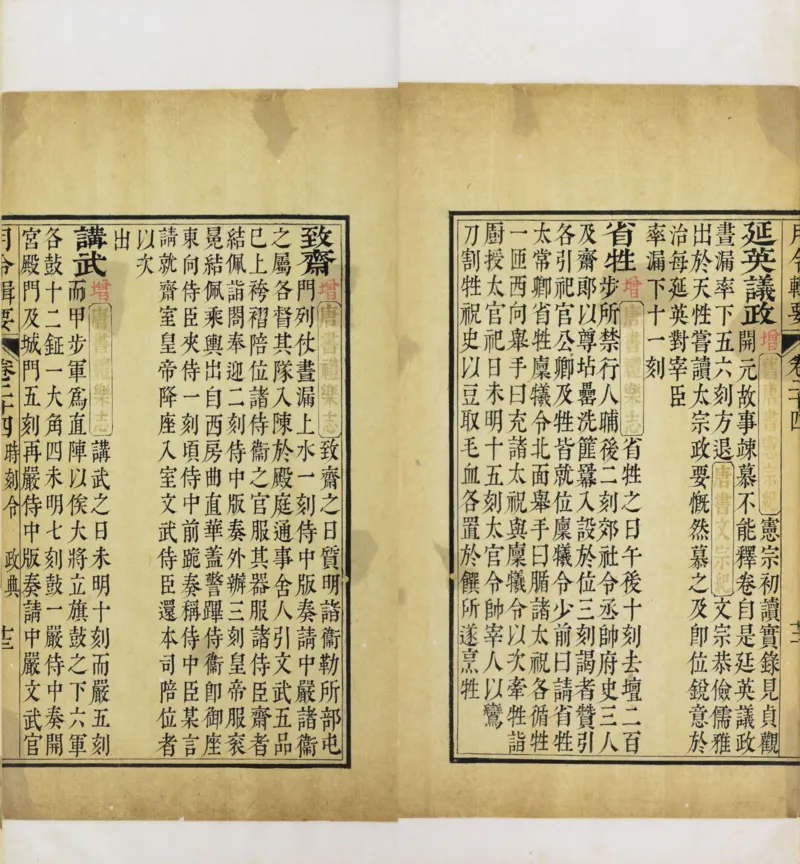 月令輯要
卷二十四
延英議政 增 舊唐書憲宗紀 憲宗初讀實錄見貞觀
開元故事竦慕不能釋卷自是延英議政
晝漏率下五六刻方退 唐書文宗紀 文宗恭儉儒雅
出於天性嘗讀太宗政要慨然慕之及卽位銳意於
治每延英對宰臣
率漏下十一刻
省牲 增 唐書禮樂志 省牲之日午後十刻去壇二百
步所禁行人晡後二刻郊社令丞帥府史三人
及齋郎以尊坫罍洗篚羃入設於位三刻謁者贊引
各引祀官公卿及牲皆就位廩犧令少前曰請省牲
太常卿省牲廩犧令北面舉手曰腯諸太祝各循牲
一匝西向舉手曰充諸太祝與廩犧令以次牽牲詣
廚授太官祀日未明十五刻太官令帥宰人以鸞
刀割牲祀史以豆取毛血各置於饌所遂烹牲
致齋 增 唐書禮樂志 致齋之日質明諸衞勒所部屯
門列仗晝漏上水一刻侍中版奏請中嚴諸衞
之屬各督其隊入陳於殿庭通事舍人引文武五品
已上袴褶陪位諸侍衞之官服其器服諸侍臣齋者
結佩詣閤奉迎二刻侍中版奏外辦三刻皇帝服衮
冕結佩乘輿出自西房曲直華蓋警蹕侍衞卽御座
東向侍臣夾侍一刻頃侍中前跪奏稱侍中臣某言
請就齋室皇帝降座入室文武侍臣還本司陪位者
以次
出
講武 增 唐書禮樂志 講武之日未明十刻而嚴五刻
而甲步軍爲直陣以俟大將立旗鼓之下六軍
各鼓十二鉦一大角四未明七刻鼓一嚴侍中奏開
宮殿門及城門五刻再嚴侍中版奏請中嚴文武官
月令輯要
卷二十四 時刻令 政典